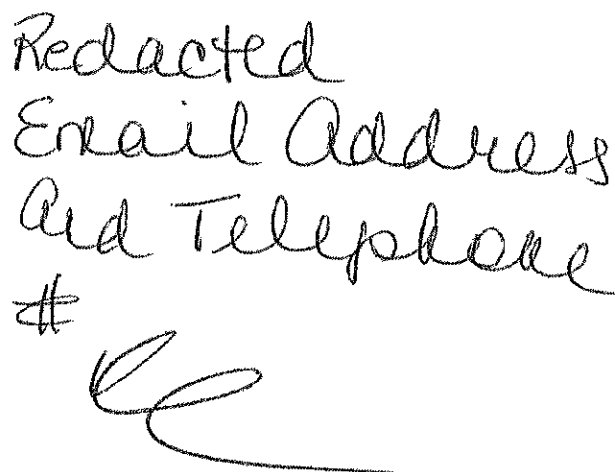 Redacted
Email Address
and Telephone
#